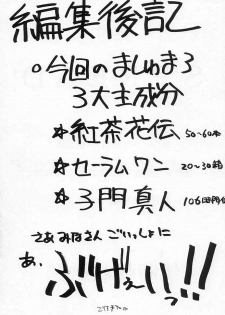 編集後記
○今回のましゅまろ
3大主成分
☆紅茶花伝 50~60本
☆セーラムワン 20~30箱
☆子門真人
さあみなさんごいっしょに
あ、
ぶげぇいっ!!